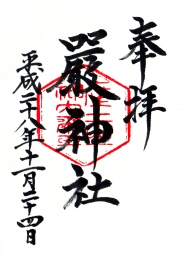 奉拝
嚴神社
平成二十八年十一月二十四日